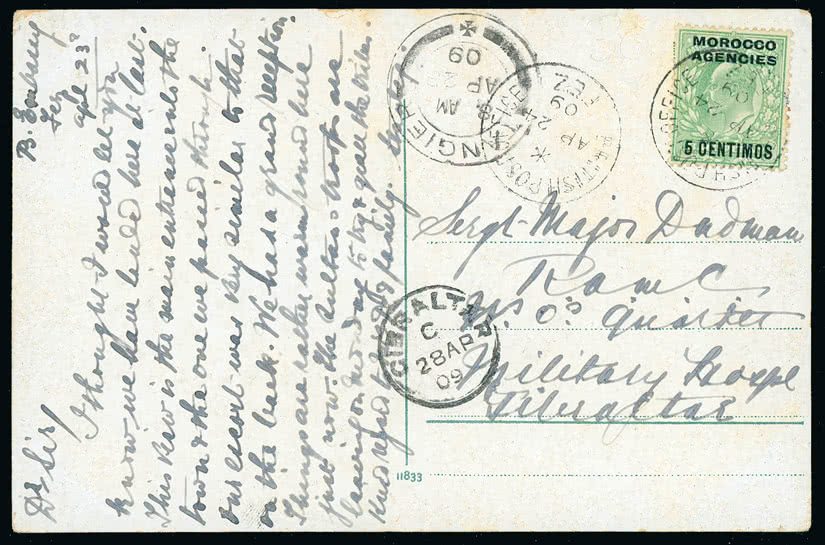 B. Embassy
Fez
apl 23rd
Dr Sir/
I thought I would let you
know we have landed here at last.
This view is the main entrance into the
town & the one we passed through
our escort was very similar to that
on the back. We had a grand reception.
Things are rather warm round here
just now. The Sultans troops are
leaving on to try & quell the tribes.
Kind regards to family.
MOROCCO
AGENCIES
5 CENTIMOS
TANGIER
AM
AP 09
BRITISH POST OFFICE
FEZ
AP 24
09
BRITISH POST OFFICE
AP 24
09
Sergt-Major Dudman
RAMC
W.O's Quarters
Military Hospl
Gibraltar
GIBRALTAR
C
28 AP
09
11833